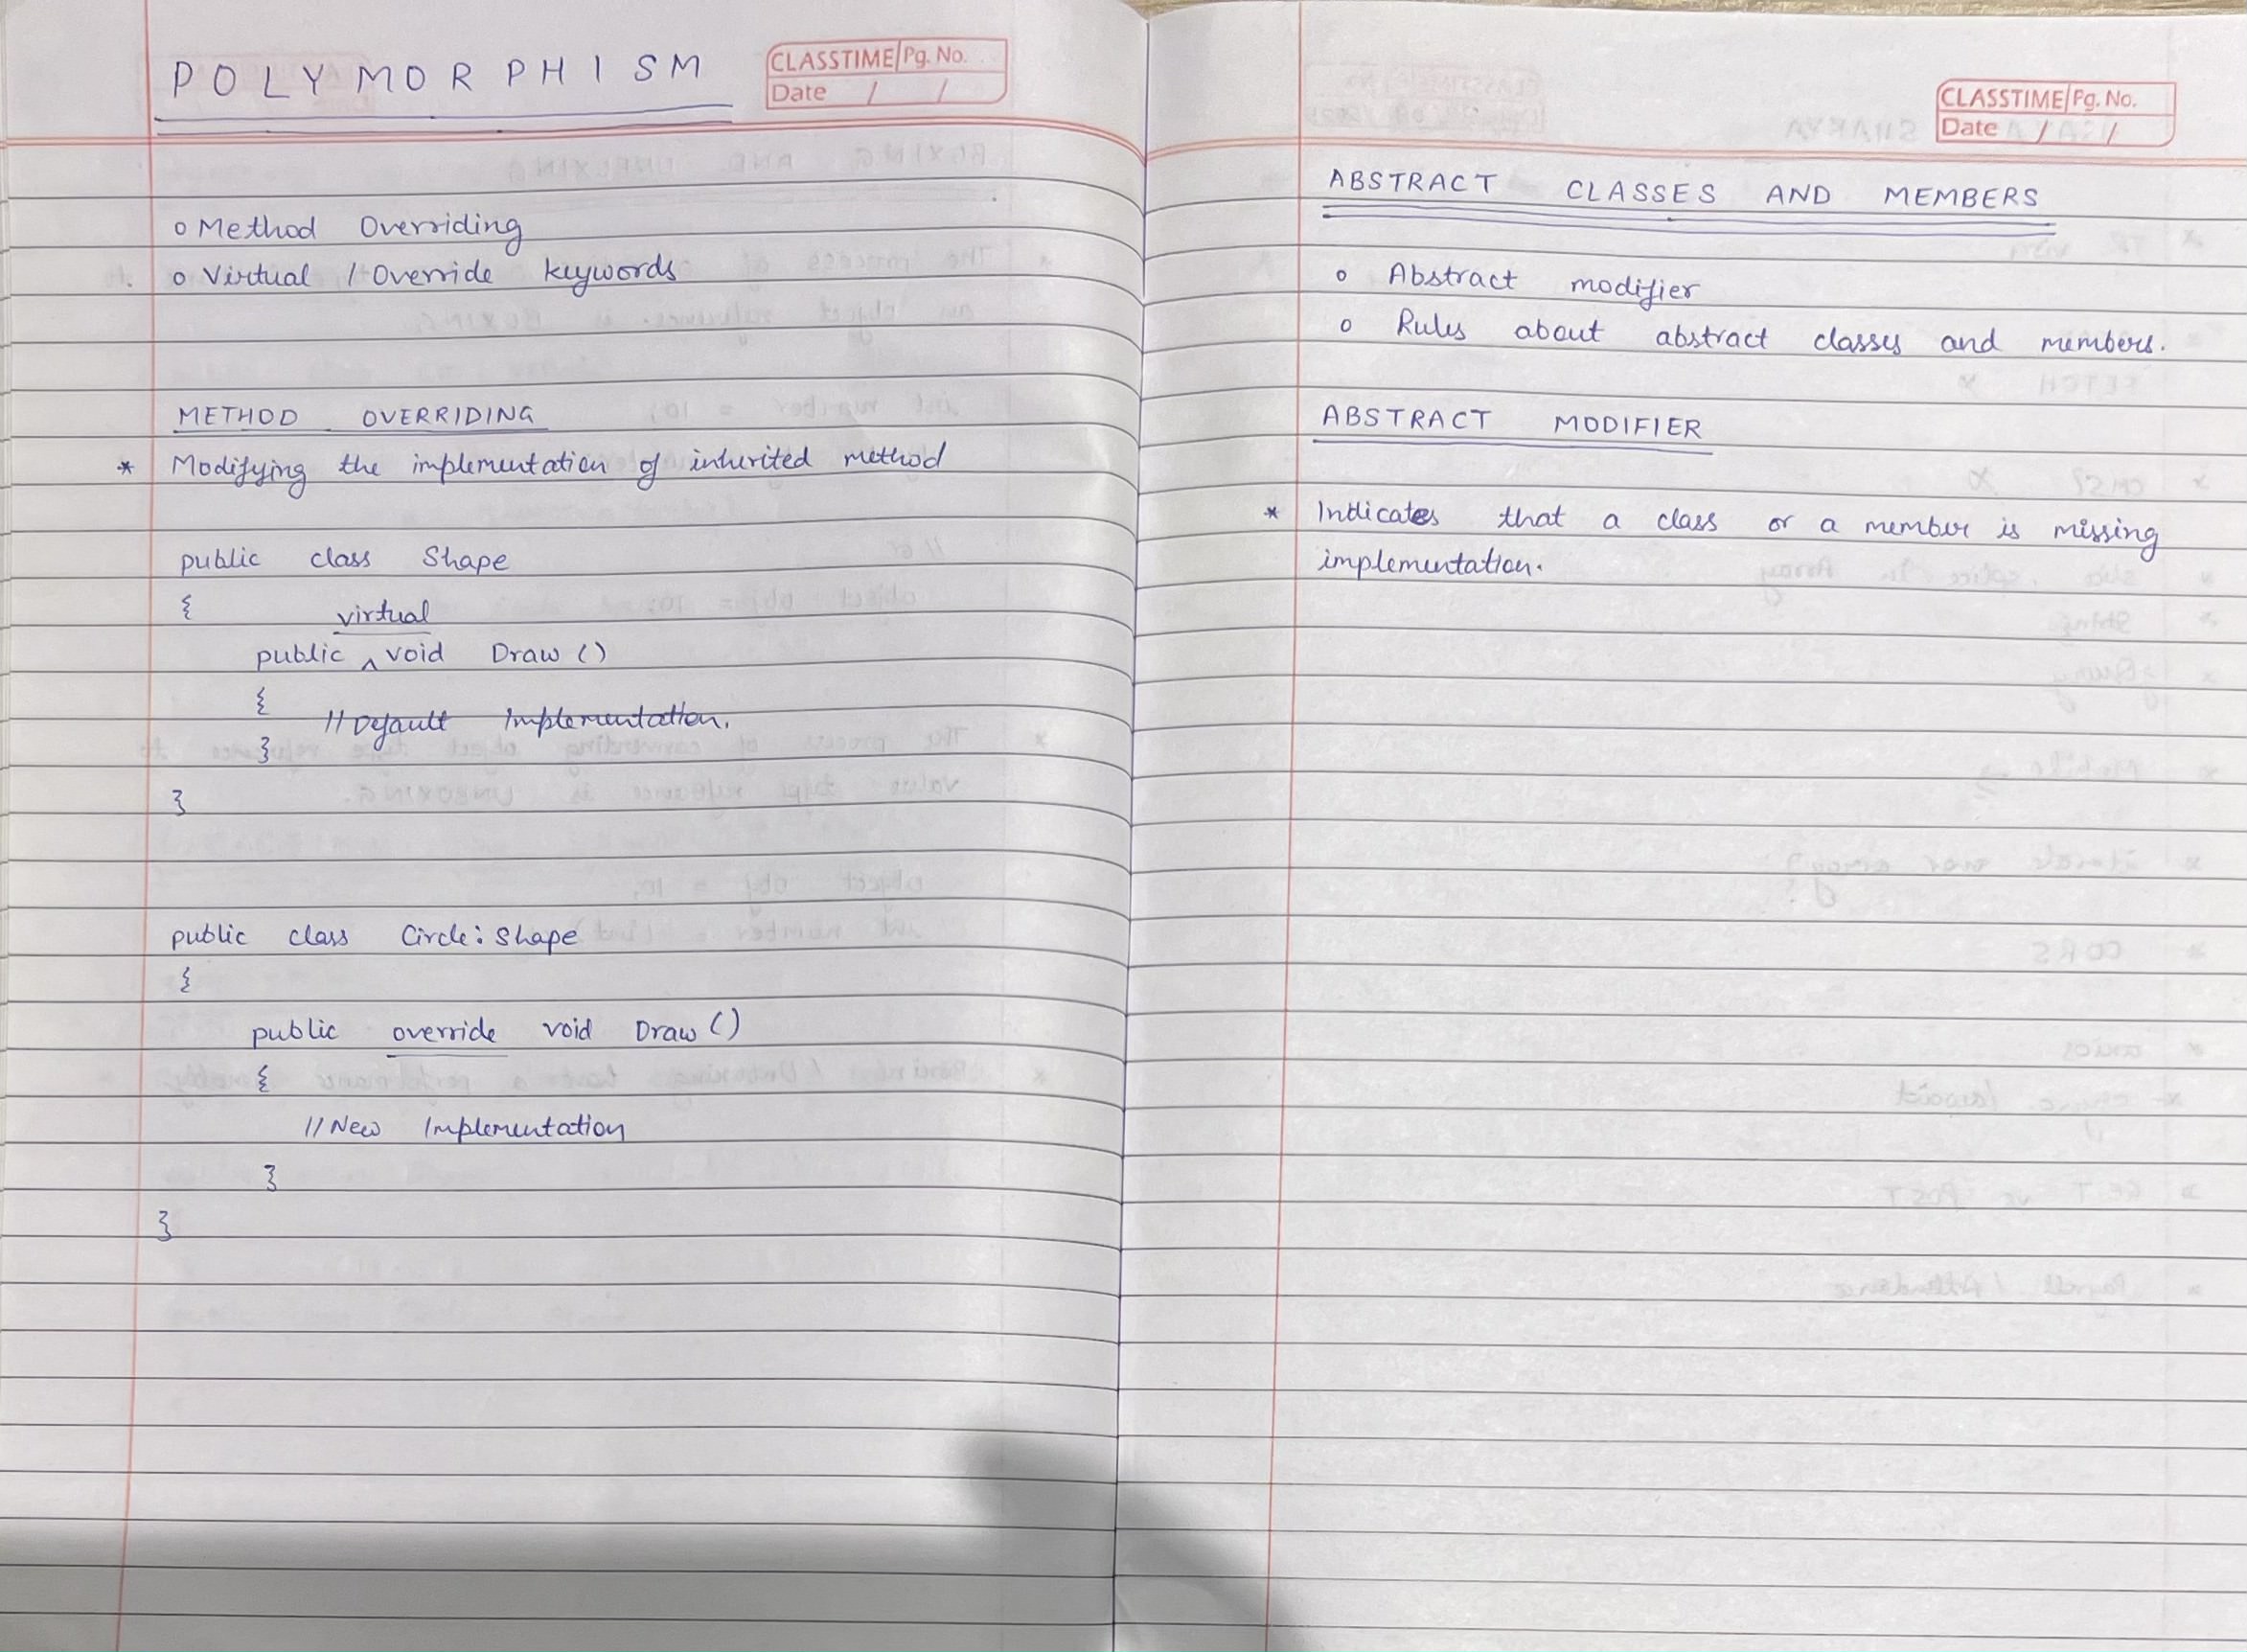 POLYMORPHISM
CLASSTIME Pg. No.
Date / /
o Method Overriding
o Virtual / Override keywords
METHOD OVERRIDING
* Modifying the implementation of inherited method
public class Shape
{
virtual
public ^ void Draw ()
{
// Default Implementation.
}
}
public class Circle : Shape
{
public override void Draw ()
{
// New Implementation
}
}
CLASSTIME Pg. No.
Date / /
ABSTRACT CLASSES AND MEMBERS
o Abstract modifier
o Rules about abstract classes and members.
ABSTRACT MODIFIER
* Indicates that a class or a member is missing
implementation.